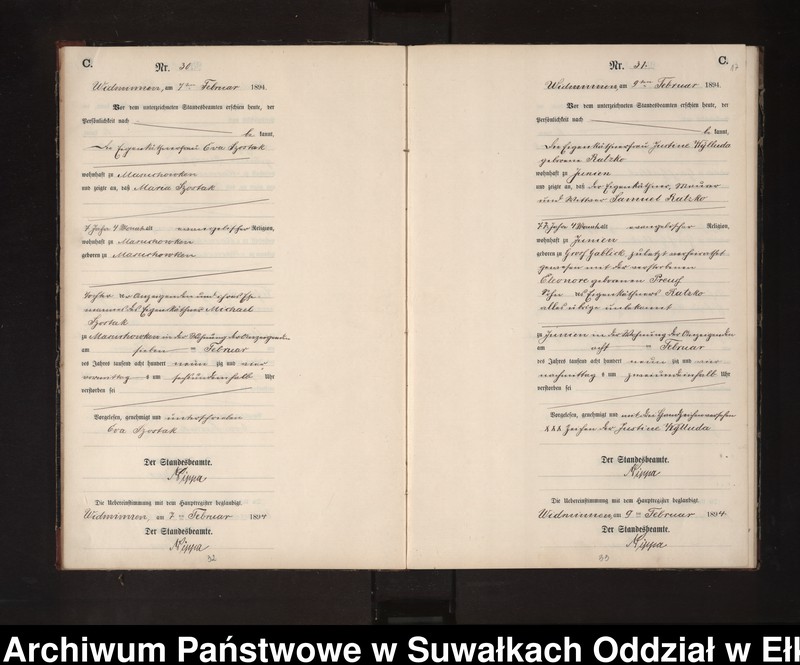 C.
Nr. 30.
Widminnen, am 7ten Februar 1894.
Vor dem unterzeichneten Standesbeamten erschien heute, der
Persönlichkeit nach
be kannt,
die Eigenkäthnerfrau Eva Szostak
wohnhaft zu Masuchowken
und zeigte an, daß Maria Szostak
7 Jahre 4 Monat alt evangelischer Religion,
wohnhaft zu Masuchowken
geboren zu Masuchowken
Tochter der Anzeigenden und ihres Ehe-
mannes des Eigenkäthners Michael
Szostak
zu Masuchowken in der Wohnung der Anzeigenden
am sieben ten Februar
des Jahres tausend acht hundert neun zig und vier
vormittag s um Uhr
verstorben sei
Vorgelesen, genehmigt und unterschrieben
Eva Szostak
Der Standesbeamte.
Nippa
Die Uebereinstimmung mit dem Hauptregister beglaubigt.
Widminnen, am 7 ten Februar 1894
Der Standesbeamte.
Nippa
32
C.
Nr. 31.
Widminnen, am 9ten Februar 1894.
Vor dem unterzeichneten Standesbeamten erschien heute, der
Persönlichkeit nach
be kannt,
die Eigenkäthnerfrau Justine Wylluda
geborene Ratzko
wohnhaft zu Junien
und zeigte an, daß der Eigenkäthner, Maurer
und Wittwer Samuel Ratzko
77 Jahre 4 Monat alt evangelischer Religion,
wohnhaft zu Junien
geboren zu Groß Gablick zuletzt verheirathet
gewesen mit der verstorbenen
Eleonore geborenen Preuß
Sohn des Eigenkäthners Ratzko
alles übrige unbekannt
zu Junien in der Wohnung der Anzeigenden
am acht ten Februar
des Jahres tausend acht hundert neun zig und vier
nachmittag s um Uhr
verstorben sei
Vorgelesen, genehmigt und mit den Handzeichen versehen
XXX Zeichen der Justine Wylluda
Der Standesbeamte.
Nippa
Die Uebereinstimmung mit dem Hauptregister beglaubigt.
Widminnen, am 9 ten Februar 1894
Der Standesbeamte.
Nippa
33
Archiwum Państwowe w Suwałkach Oddział w Ełk